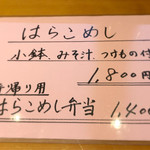 はらこめし
小鉢、みそ汁、つけもの付
1,800円
帰り用
はらこめし弁当 1,400